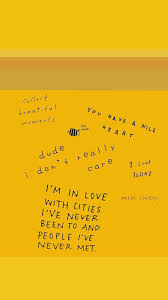 collect
beautiful
moments
YOU HAVE A NICE
HEART
dude
i don't really
care
I LOVE
TODAY
I'M IN LOVE
WITH CITIES
I'VE NEVER
BEEN TO AND
PEOPLE I'VE
NEVER MET.